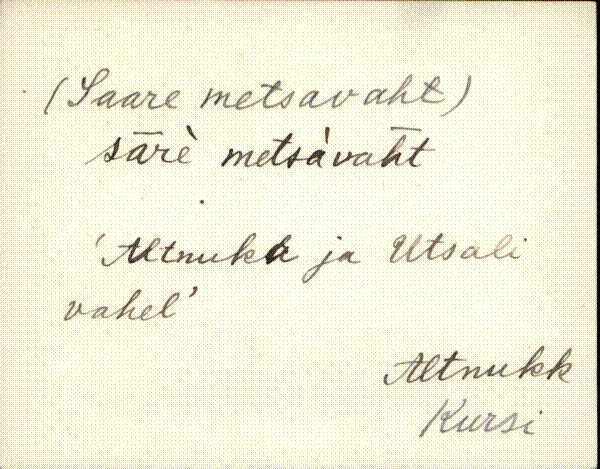 (Saare metsavaht)
sārè metsàvah̄t
'Altnuka ja Utsali
vahel'
Altnukk
Kursi